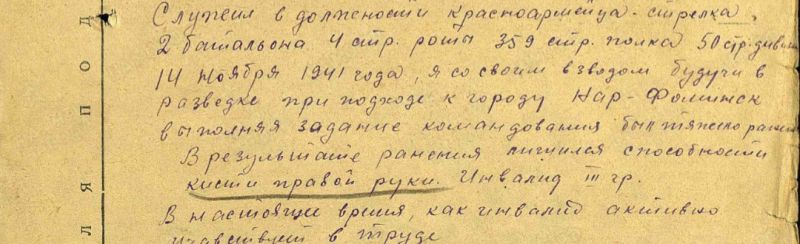 Служил в должности красноармейца-стрелка,
2 батальона 4 стр. роты 359 стр. полка 50 стр. дивизии
14 ноября 1941 года, я со своим взводом будучи в
разведке при подходе к городу Нар-Фоминск
выполняя задание командования был тяжело ранен
В результате ранения лишился способности
кисти правой руки. Инвалид III гр.
В настоящее время, как инвалид активно
участвует в труде
Л Я П О Д